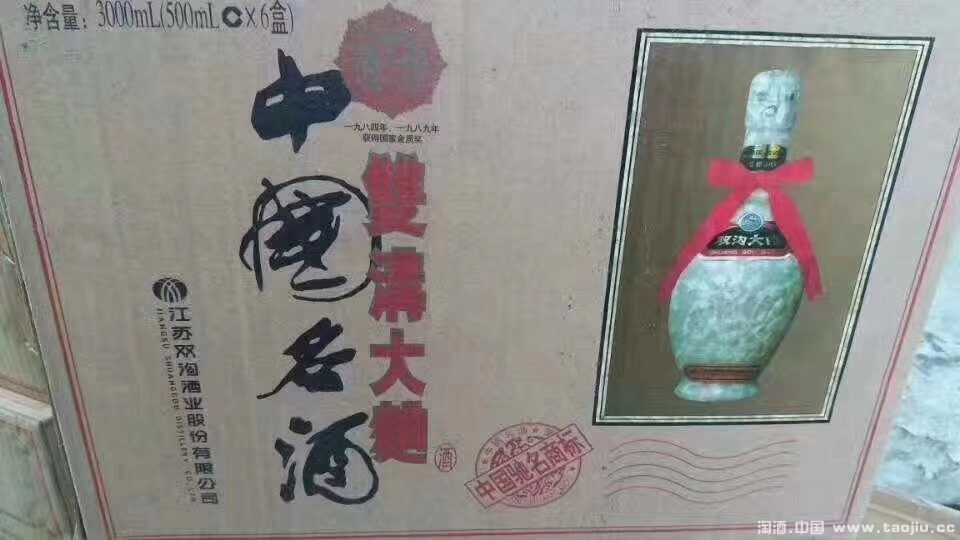 净含量：3000mL(500mL × 6盒)
一九八四年、一九八九年
获得国家金质奖
中國名酒
雙溝大麯
酒
江苏双沟酒业股份有限公司
JIANGSU SHUANGGOU DISTILLERY CO.LTD
中国驰名商标
双沟大曲
淘酒.中国 www.taojiu.cc